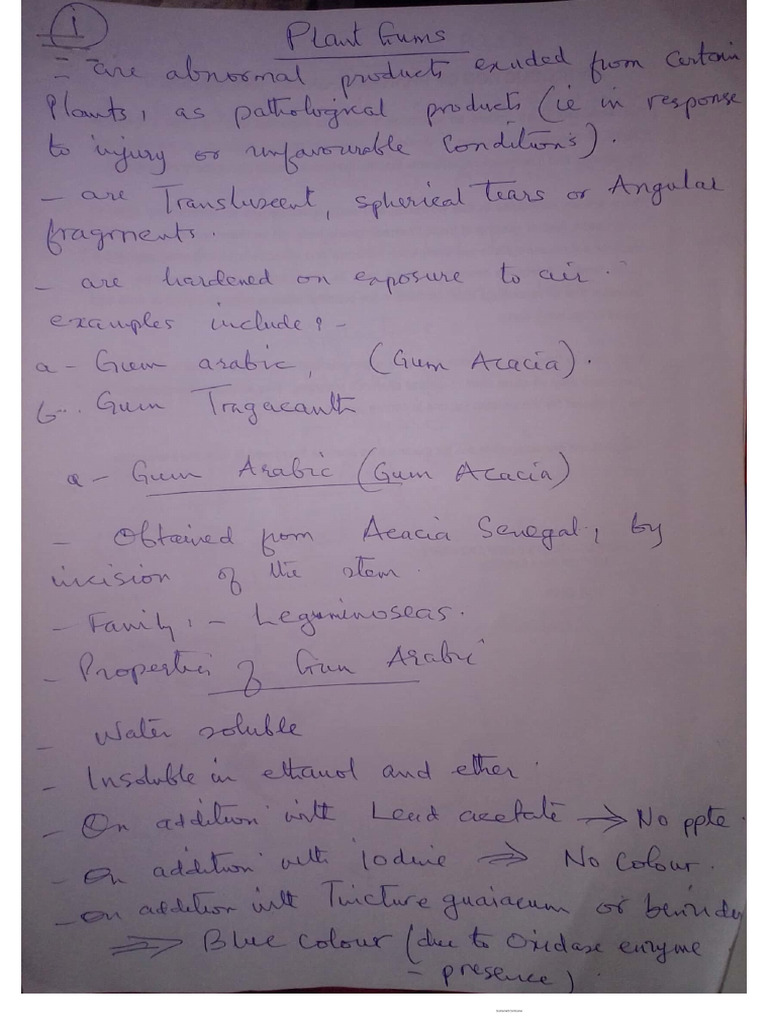 i
Plant Gums
= are abnormal products exuded from certain
Plants, as pathological products (ie in response
to injury or unfavourable conditions).
- are Transluscent, spherical Tears or Angular
fragments.
- are hardened on exposure to air.
examples include:-
a - Gum arabic, (Gum Acacia).
b - Gum Tragacanth
a - Gum Arabic (Gum Acacia)
- Obtained from Acacia Senegal, by
incision of the stem.
- Family:- Leguminoseas.
- Properties of Gum Arabic
- Water soluble
- Insoluble in ethanol and ether.
- On addition with Lead acetate => No ppte.
- On addition with iodine => No Colour.
- On addition with Tincture guaiacum or
=> Blue colour (due to Oxidase enzyme
- presence).